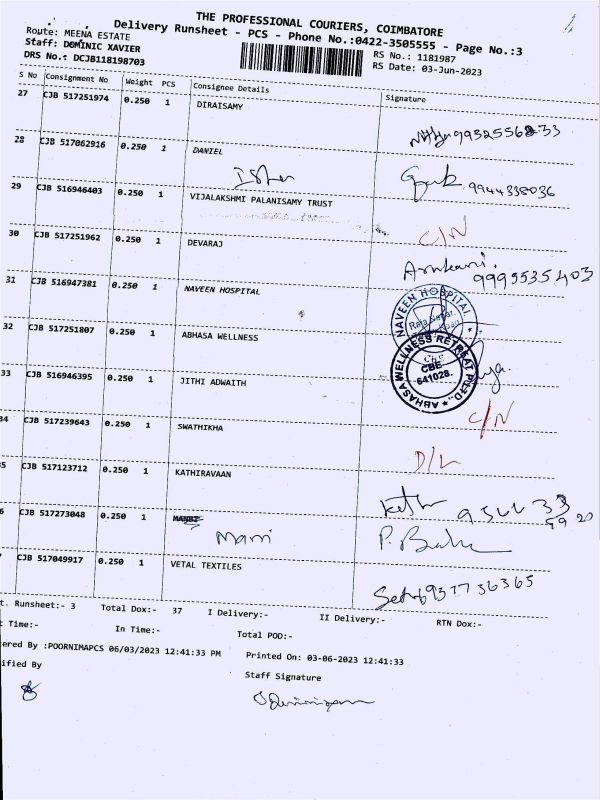 THE PROFESSIONAL COURIERS, COIMBATORE
Delivery Runsheet - PCS - Phone No.:0422-3505555 - Page No.:3
Route: MEENA ESTATE
Staff: DOMINIC XAVIER
RS No.: 1181987
DRS No.: DCJB118198703
RS Date: 03-Jun-2023
S No Consignment No Weight PCS Consignee Details Signature
27 CJB 517251974 0.250 1 DIRAISAMY
28 CJB 517062916 0.250 1 DANIEL 9944338036
29 CJB 516946403 0.250 1 VIJALAKSHMI PALANISAMY TRUST C/N
30 CJB 517251962 0.250 1 DEVARAJ 9995535403
31 CJB 516947381 0.250 1 NAVEEN HOSPITAL NAVEEN HOSPITAL
32 CJB 517251807 0.250 1 ABHASA WELLNESS ABHASA WELLNESS RETREAT P LTD. CBE- 641028.
33 CJB 516946395 0.250 1 JITHI ADWAITH C/N
34 CJB 517239643 0.250 1 SWATHIKHA D/L
5 CJB 517123712 0.250 1 KATHIRAVAAN
6 CJB 517273048 0.250 1 Mani P. Balu
CJB 517049917 0.250 1 VETAL TEXTILES 9377736365
t. Runsheet:- 3 Total Dox:- 37 I Delivery:- II Delivery:- RTN Dox:-
t Time:- In Time:- Total POD:-
tered By :POORNIMAPCS 06/03/2023 12:41:33 PM Printed On: 03-06-2023 12:41:33
ified By Staff Signature